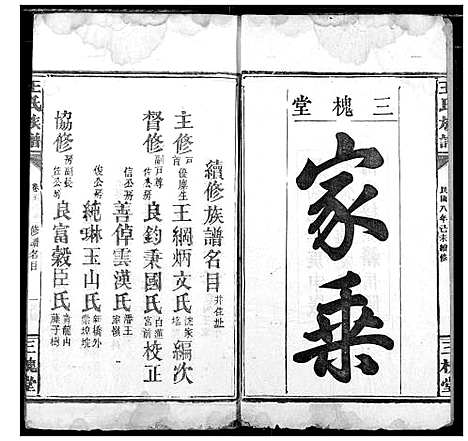 王氏族譜
民國八年己未續修
三槐堂
三槐堂
家乘
續修族譜名目 并住址
主修 優廩生 王綱炳文氏 編次
督修 副 良鈞秉國氏 校正
信公房 善倬雲漢氏
俊公房 純琳玉山氏
協修 房副長 良富穀臣氏
王氏族譜
修譜名目
三槐堂